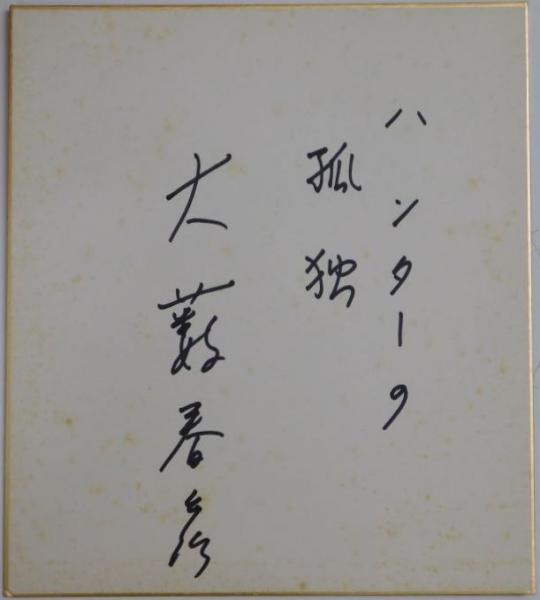 ハンターの
孤独
大藪春彦